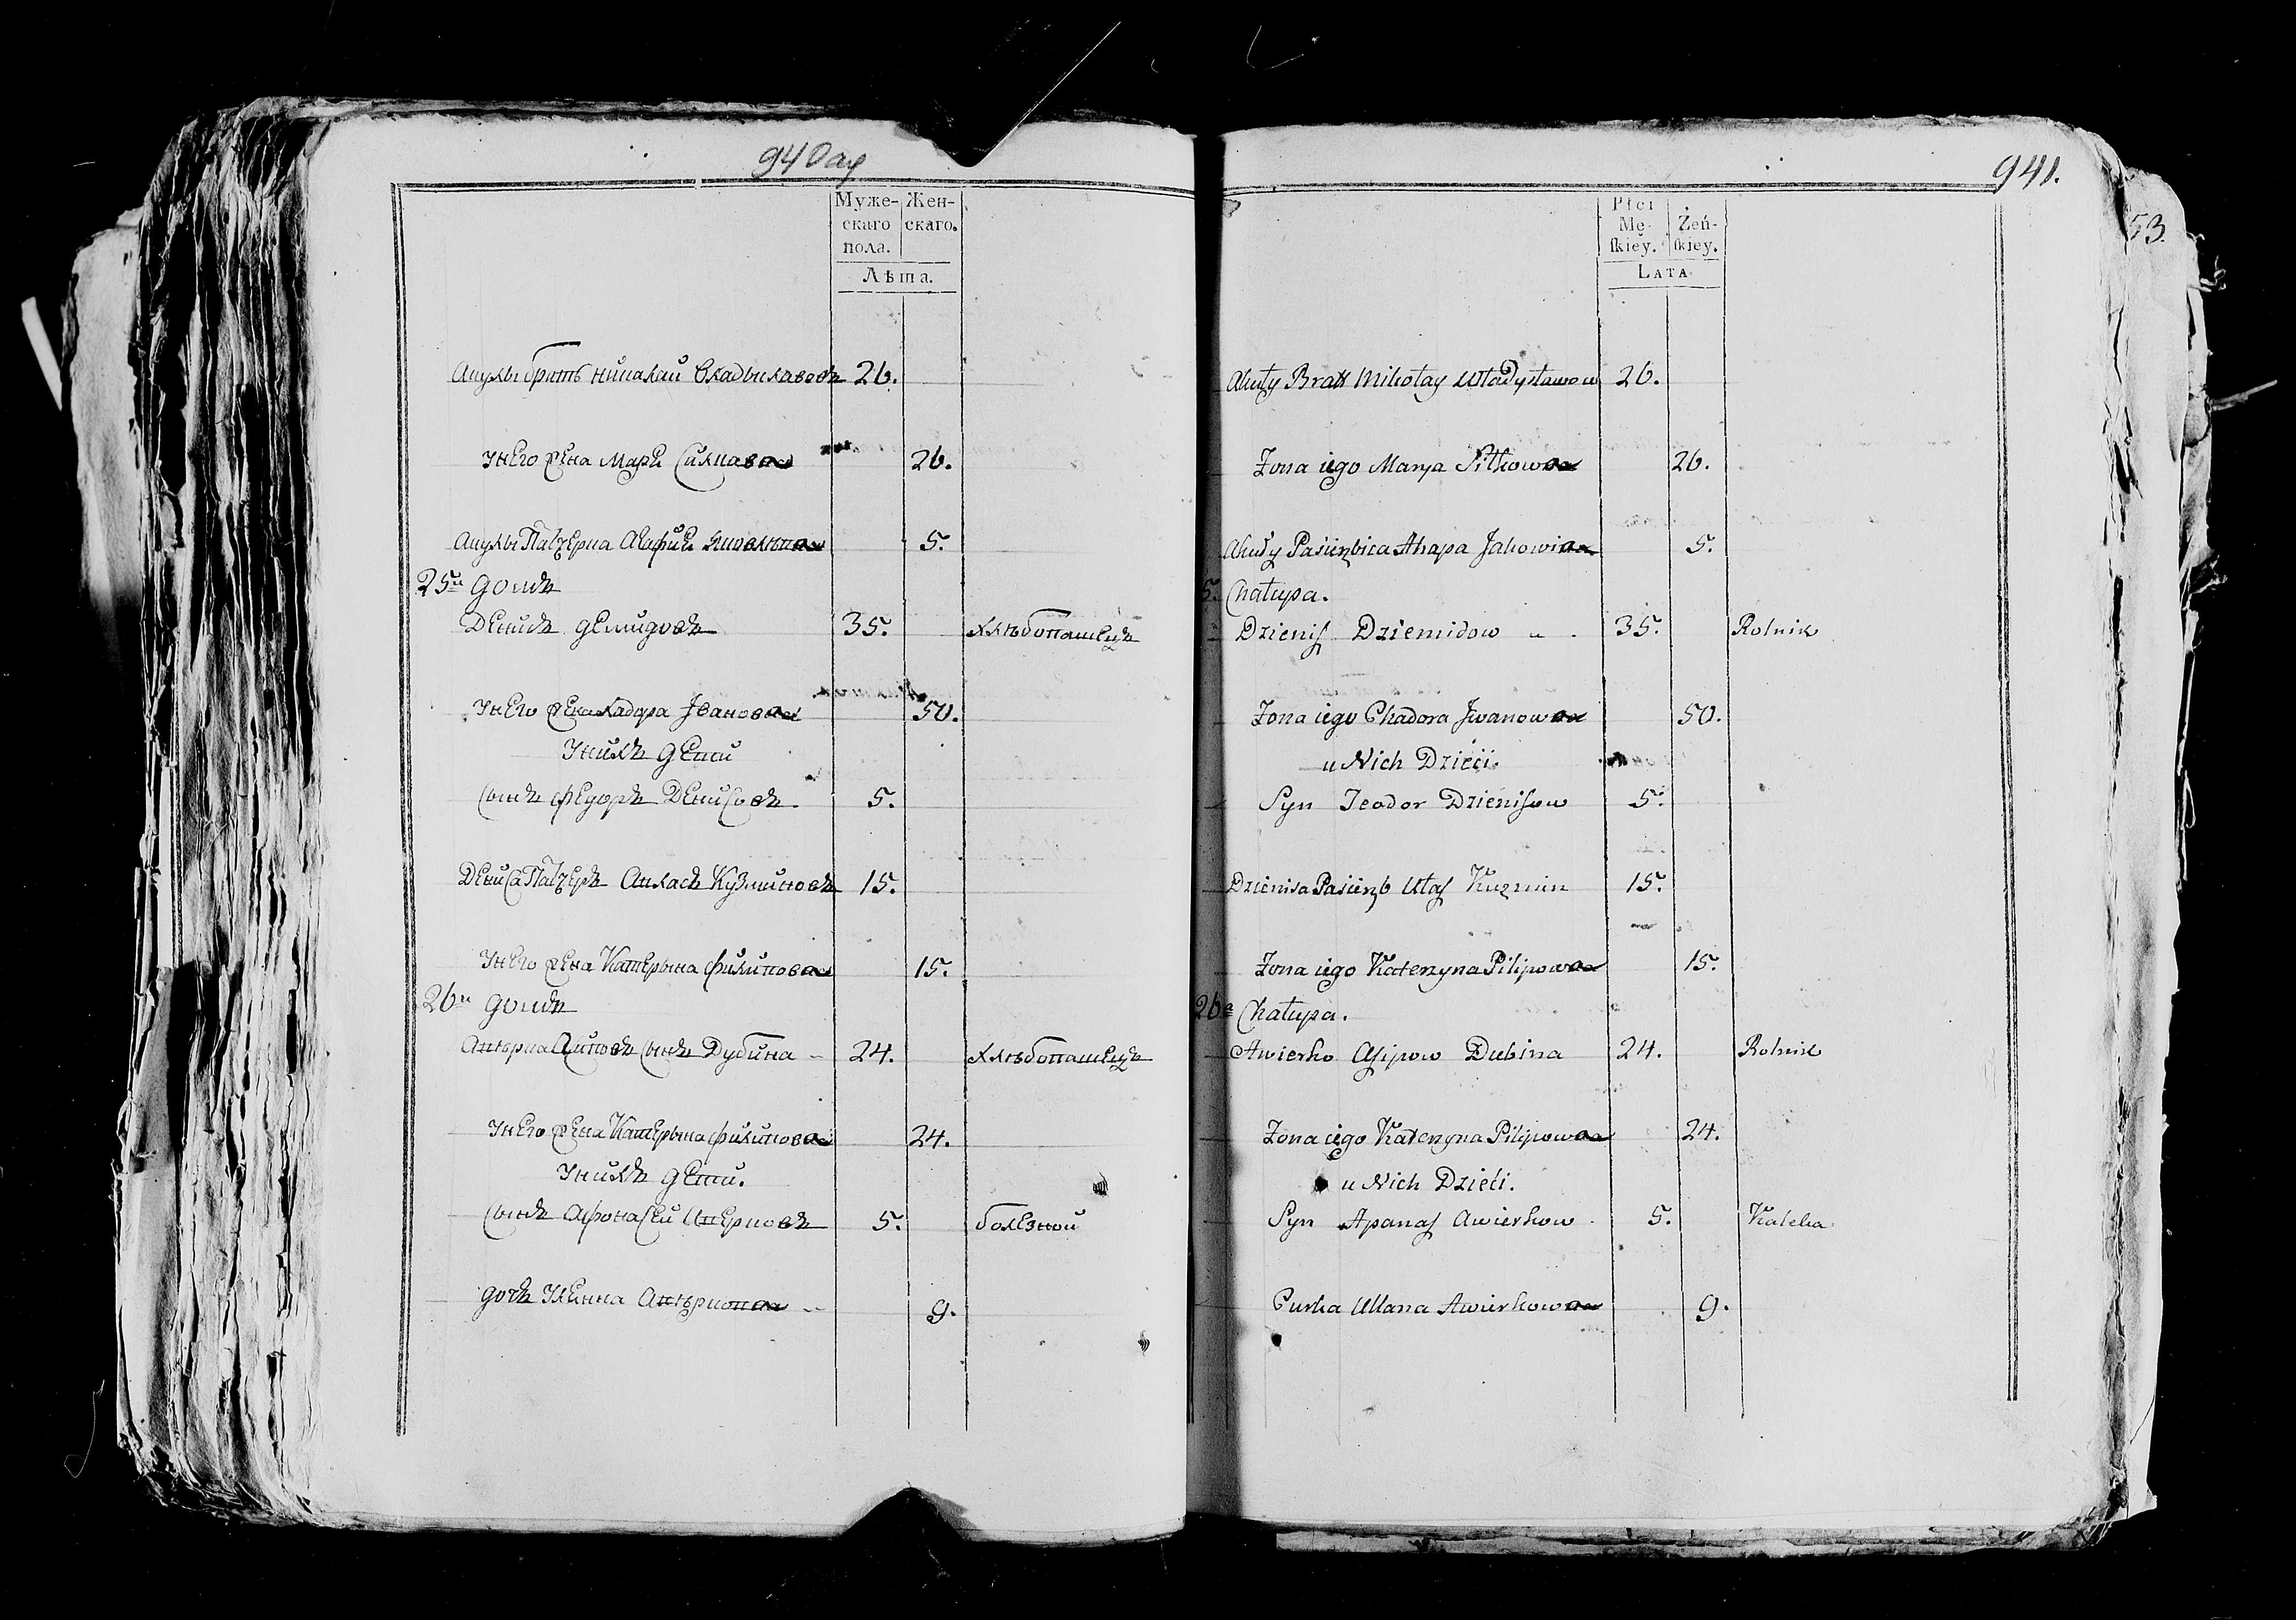 940
Муже-
скаго
пола.
Жен-
скаго.
Лѣта.
Акулы братъ Николай Владыславовъ 26.
У него жена Маря Силкова 26.
Акулы Пасчерка Агафия Яковлева 5.
25й домъ
Денисъ Демидовъ 35. хлѣбопашецъ
У него жена Хадора Ивановая 50.
У нихъ дети
Сынъ Федоръ Денисовъ 5.
Дениса Пасчеръ Кузминовъ 15.
У него жена Катерына Филипова 15.
26й домъ
Сынъ Дубина 24. хлѣбопашецъ
У него жена Катерына Филипова 24.
У нихъ дети.
Сынъ Афонасей 5. болезной
дочъ Улянна 9.
941.
53.
Płci
Mę-
ſkiey.
Żeń-
ſkiey.
LATA
Akuły Bratt Mikołay Władysławow 26.
Żona iego Marya Sitkowaa 26.
Akuły Pasierzbica Ahapa Jakowiaa 5.
5. Chałupa.
Dzieniſ Dziemidow 35. Rolnik
Żona iego Chadora Jwanowaa 50.
u Nich Dzieci.
Syn Teodor Dzieniſow 5.
Dzienisa Pasierzb Ułaſ Kuzmin 15.
Żona iego Katerzyna Pilipowaa 15.
26a Chałupa.
Awierko Aſipow Dubina 24. Rolnik
Żona iego Katerzyna Pilipowaa 24.
u Nich Dzieci.
Syn Apanaſ Awierkow 5. Kaleka
Curka Ullana Awierkowaa 9.